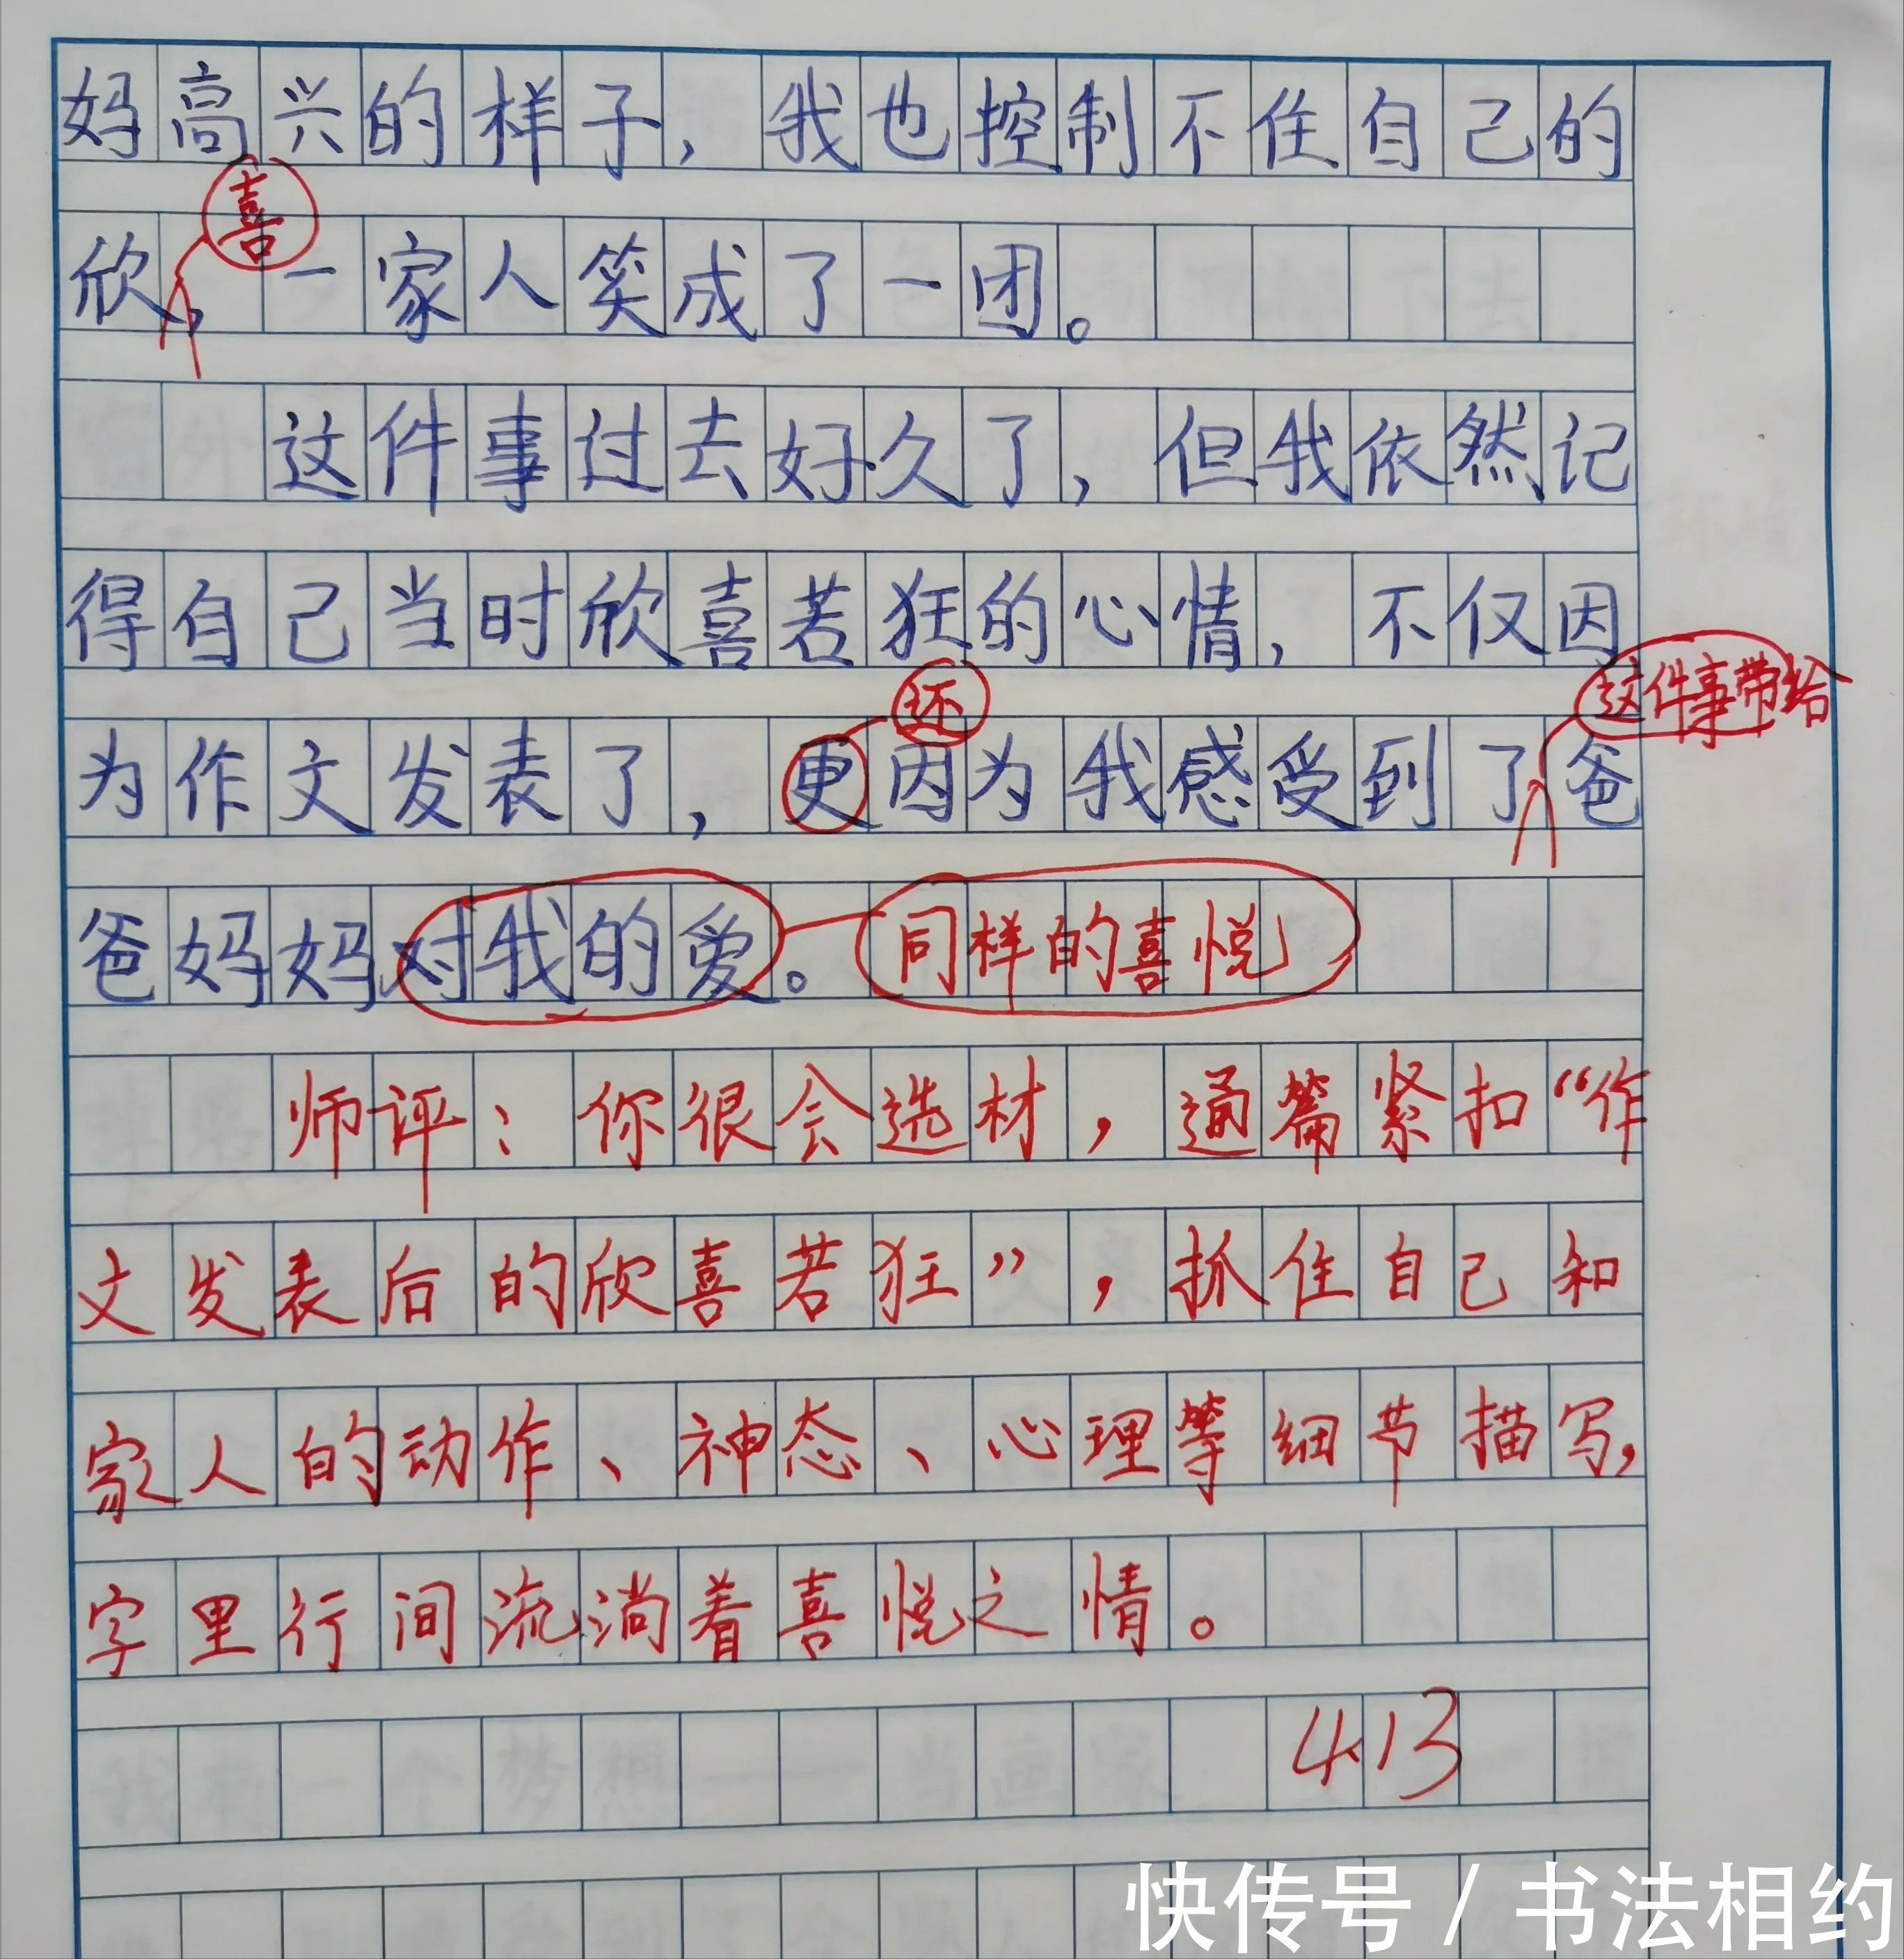 妈高兴的样子，我也控制不住自己的
喜
欣，一家人笑成了一团。
这件事过去好久了，但我依然记
得自己当时欣喜若狂的心情，不仅因
还
这件事带给
为作文发表了，更因为我感受到了爸
爸妈妈对我的爱。同样的喜悦
师评：你很会选材，通篇紧扣“作
文发表后的欣喜若狂”，抓住自己和
家人的动作、神态、心理等细节描写，
字里行间流淌着喜悦之情。
4.13
快传号 / 书法相约